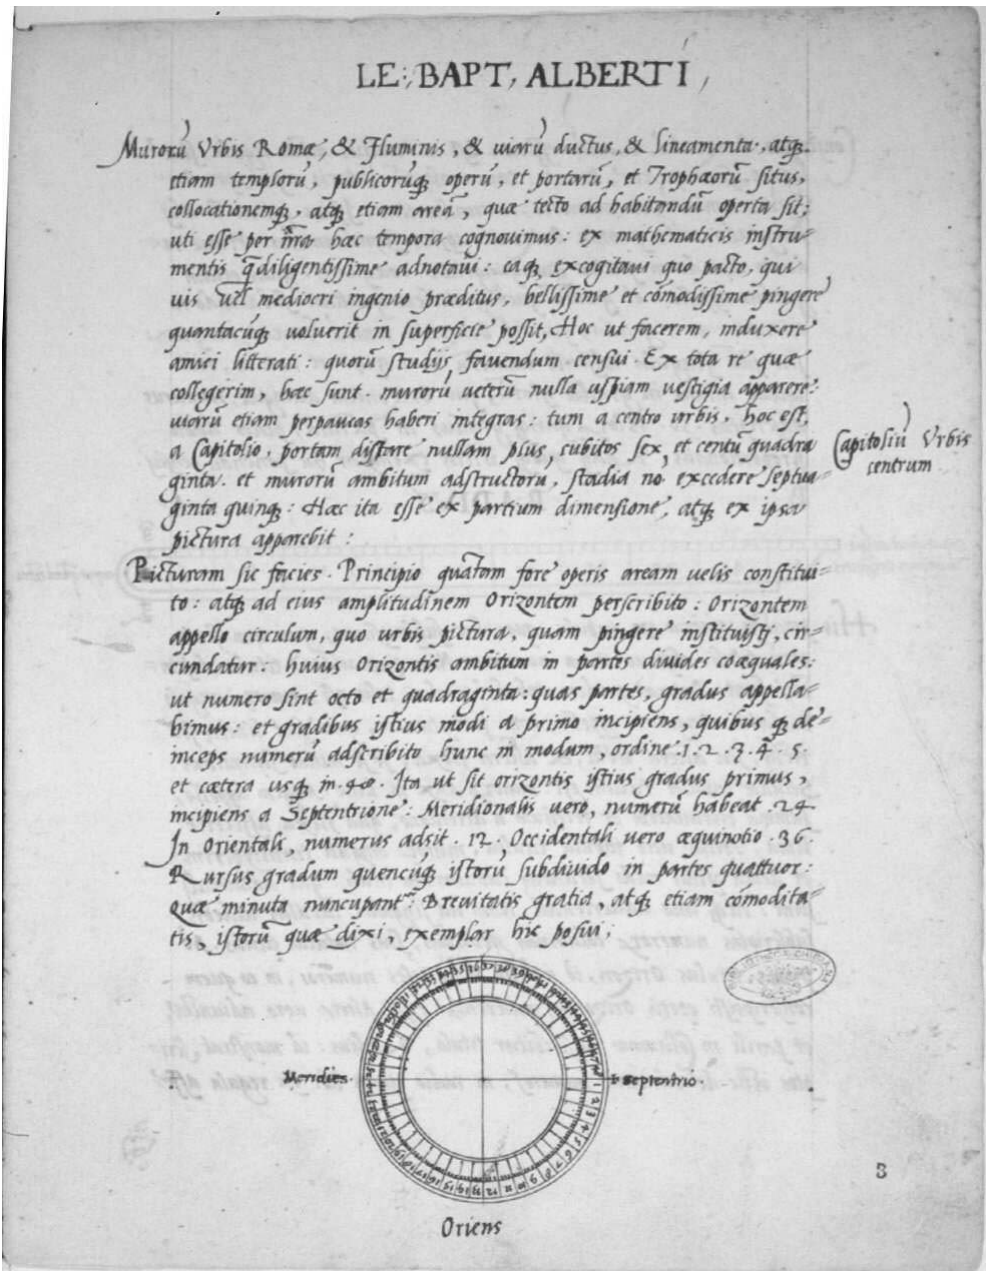 LE: BAPT, ALBERTI,
Murorū Vrbis Romæ, & Fluminis, & uiarū ductus, & lineamenta, atq;
etiam templorū, publicorūq; operū, et portarū, et Trophæorū situs,
collocationemq;, atq; etiam areā, quæ tecto ad habitandū operta sit;
uti esse per nr̄a hæc tempora cognouimus: ex mathematicis instru=
mentis q̄diligentissime adnotaui: eaq; excogitaui quo pacto, qui
uis uel mediocri ingenio præditus, bellissime et cōmodissime pingere
quantacūq; uoluerit in superficie possit, Hoc ut facerem, induxere
amici litterati: quorū studijs fauendum censui. Ex tota re quæ
collegerim, hæc sunt. murorū ueterū nulla uspiam uestigia apparere:
uiarū etiam perpaucas haberi integras: tum a centro urbis, hoc est,
a Capitolio, portam distare nullam plus, cubitos sex, et centū quadra
ginta. et murorū ambitum adstructorū, stadia nō excedere septua=
ginta quinq;: Hæc ita esse ex partium dimensione, atq; ex ipsa
pictura apparebit:
Capitoliū Vrbis
centrum
Picturam sic facies. Principio quātam fore operis aream uelis constitui=
to: atq; ad eius amplitudinem Orizontem perscribito: Orizontem
appello circulum, quo urbis pictura, quam pingere instituisti, cir=
cundatur: huius Orizontis ambitum in partes diuides coæquales:
ut numero sint octo et quadraginta: quas partes, gradus appella=
bimus: et gradibus istius modi a primo incipiens, quibus q; de=
inceps numerū adscribito hunc in modum, ordine .1.2.3.4.5.
et cætera usq; in .48. Ita ut sit orizontis istius gradus primus,
incipiens a Septentrione: Meridionalis uero, numerū habeat .24.
In Orientali, numerus adsit .12. Occidentali uero æquinotio .36.
Rursus gradum quencūq; istorū subdiuido in partes quattuor:
Quæ minuta nuncupant: Breuitatis gratia, atq; etiam cōmodita=
tis, istorū quæ dixi, exemplar hic posui;
Meridies.
septentrio
Oriens
3